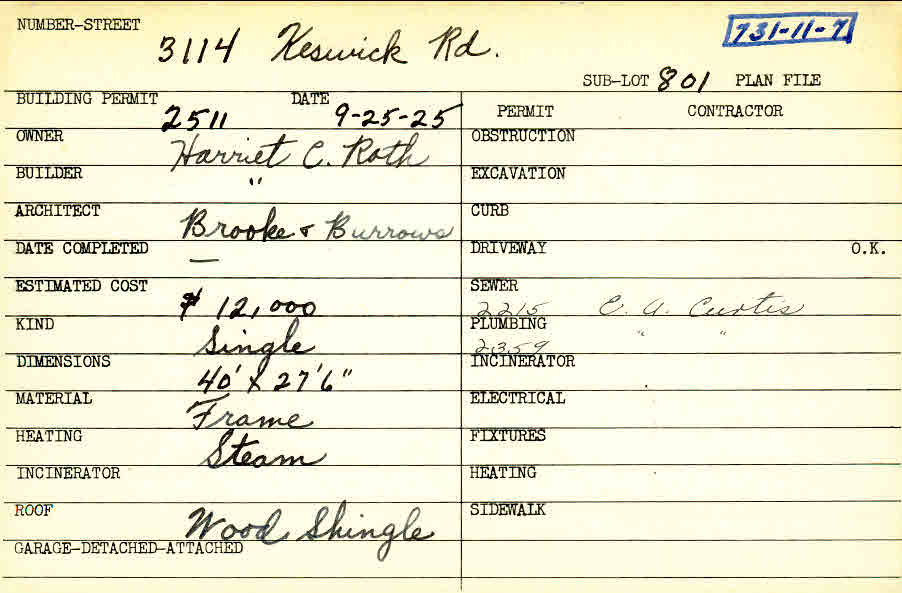 NUMBER-STREET 3114 Keswick Rd. 731-11-7
SUB-LOT 801 PLAN FILE
BUILDING PERMIT 2511 DATE 9-25-25
OWNER Harriet C. Roth
BUILDER "
ARCHITECT Brooke & Burrows
DATE COMPLETED —
ESTIMATED COST $12,000
KIND Single
DIMENSIONS 40' X 27'6"
MATERIAL Frame
HEATING Steam
INCINERATOR
ROOF Wood Shingle
GARAGE-DETACHED-ATTACHED
PERMIT CONTRACTOR
OBSTRUCTION
EXCAVATION
CURB
DRIVEWAY O.K.
SEWER 2215 E. A. Curtis
PLUMBING 2359 " "
INCINERATOR
ELECTRICAL
FIXTURES
HEATING
SIDEWALK